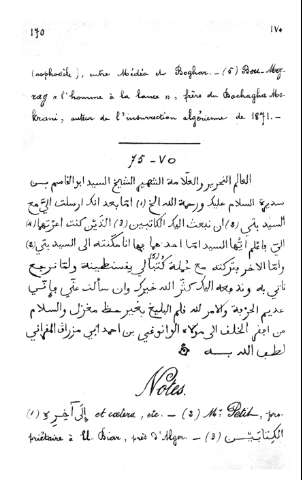 170 ١٧٠
(asphodèle), entre Médéa et Boghar. — (5) Bou-Mez-
rag « l'homme à la lance », frère du Bachagha Mo-
krani, auteur de l'insurrection algérienne de 1871. —
75 - ٧٥
العالم النحرير والعلامة الشهير الشيخ السيد ابو القاسم بن
سديرة السلام عليك ورحمة الله الخ (١) اما بعد انك ارسلت الي مع
السيد بتي (٢) ان نبعث اليك الكتابين (٣) الذين كنت اعرتها (٤)
الي فاعلم ايها السيد اما احدهما بها انا مكنته الى السيد بتي (٥)
واما الاخر بتركته مع جملة كتبي في فسنطينة ولما نرجع
ناتي به وندفعه اليك كثر الله خيرك وان سالت عني فإنني
عديم الحرية والامر لله فلم البليغ بغير حظ مغزل والسلام
من اففر الخلف الى مولاه الوانوغي بن احمد ابي مزراف المفراني
لطف الله به
Notes.
(1) إلى آخره et cœtera, etc. — (2) Mr Petit, pro-
priétaire à El Biar, près d'Alger. — (3) الكتابين